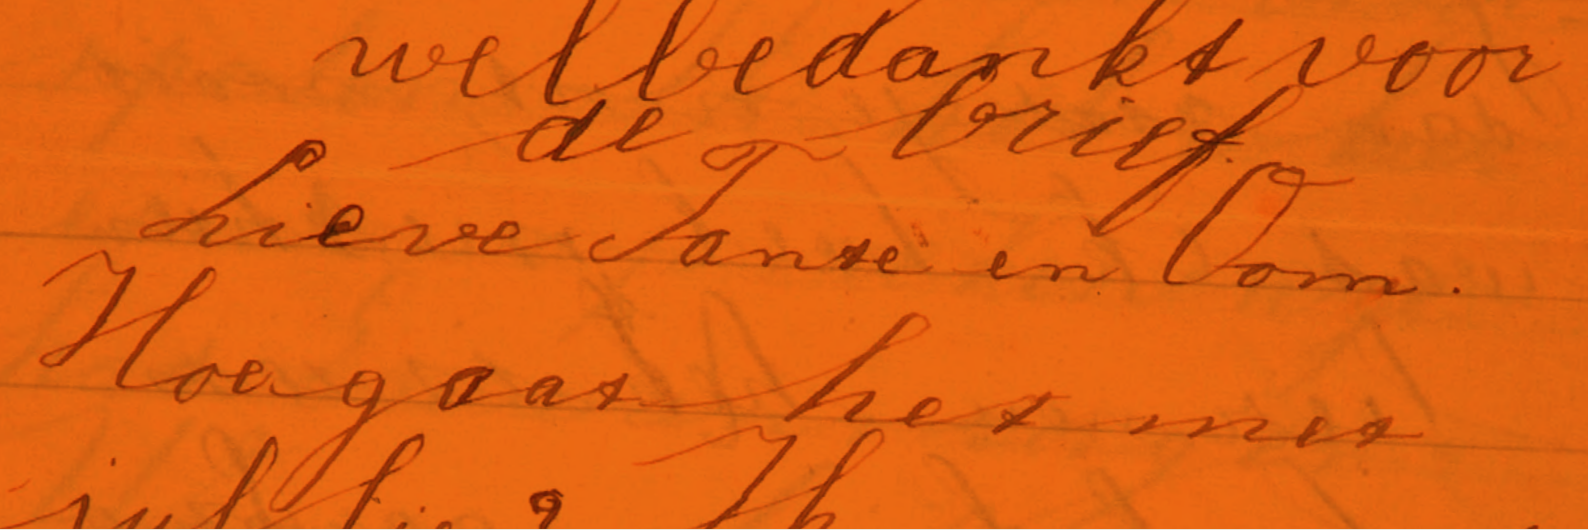 wel bedankt voor
de brief.
Lieve Tante en Oom.
Hoe gaat het met
jullie? Ik